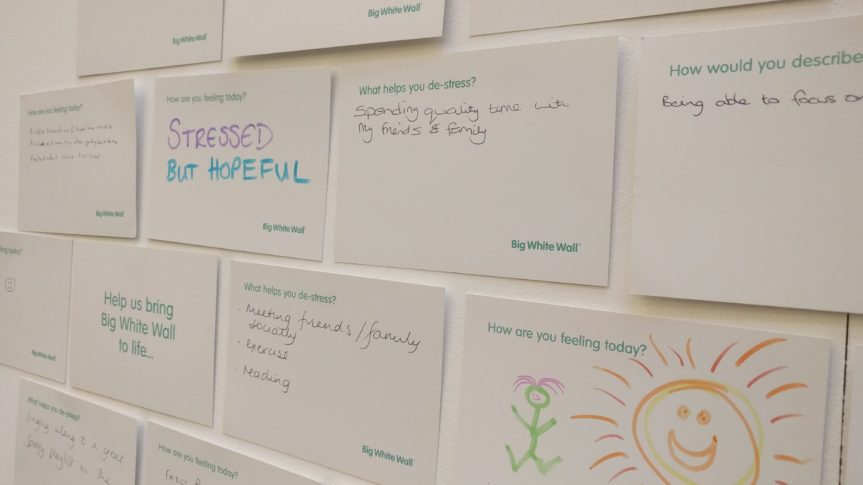 Big White Wall
Big White Wall
How are you feeling today?
Big White Wall
How are you feeling today?
STRESSED
BUT HOPEFUL
Big White Wall
What helps you de-stress?
Spending quality time with
My friends & family
Big White Wall
How would you describe
Being able to focus
Big White Wall
Help us bring
Big White Wall
to life...
What helps you de-stress?
• Meeting friends/family
socially
• exercise
• reading
Big White Wall
How are you feeling today?
What helps you de-stress?
Singing along to a great
Spotify playlist in the
How are you feeling today?